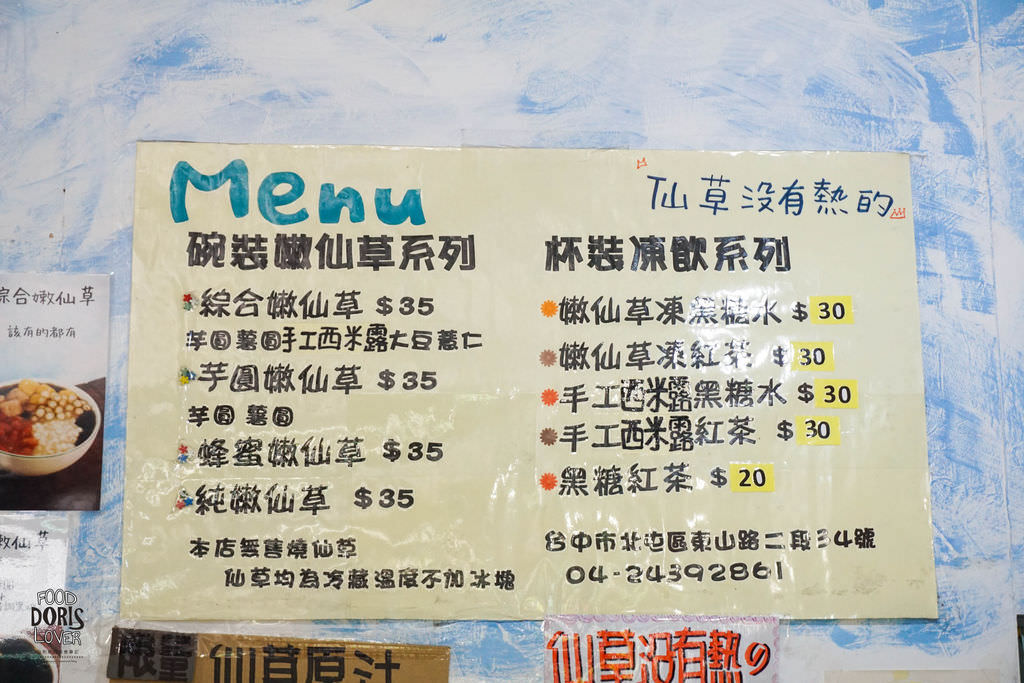 Menu
仙草没有熱的
碗裝嫩仙草系列
綜合嫩仙草 $35
芋圓薯圓手工西米露大豆薏仁
芋圓嫩仙草 $35
芋圓 薯圓
蜂蜜嫩仙草 $35
純嫩仙草 $35
本店無售燒仙草
仙草均為冷藏溫度不加冰塊
杯裝凍飲系列
嫩仙草凍黑糖水 $30
嫩仙草凍紅茶 $30
手工西米露黑糖水 $30
手工西米露紅茶 $30
黑糖紅茶 $20
台中市北屯區東山路二段34號
04-24392861
綜合嫩仙草
該有的都有
嫩仙草
FOOD
DORIS
LOVER
限量 仙草原汁
仙草沒有熱の